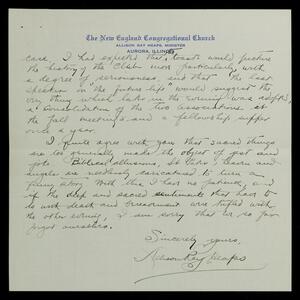 The New England Congregational Church
ALLISON RAY HEAPS, MINISTER
AURORA, ILLINOIS
care. I had expected that toasts would picture
the history of the Club more particularly, with
a degree of seriousness, and that the last
speaker on "the future life" would suggest the
very thing which later in the evening was adopted,
a consolidation of the two associations, at
the fall meetings and a fellowship supper
once a year.
I quite agree with you that sacred things
are too generally made the object of jest and
joke. Biblical allusions, St. Peter, heaven and
angels are needlessly caricatured to turn a
funny story. With this I have no patience, and
if the deep and sacred sentiments that have to
do with death and bereavement were trifled with
the other evening, I am sorry that we so far
forgot ourselves.
Sincerely yours,
Allison Ray Heaps